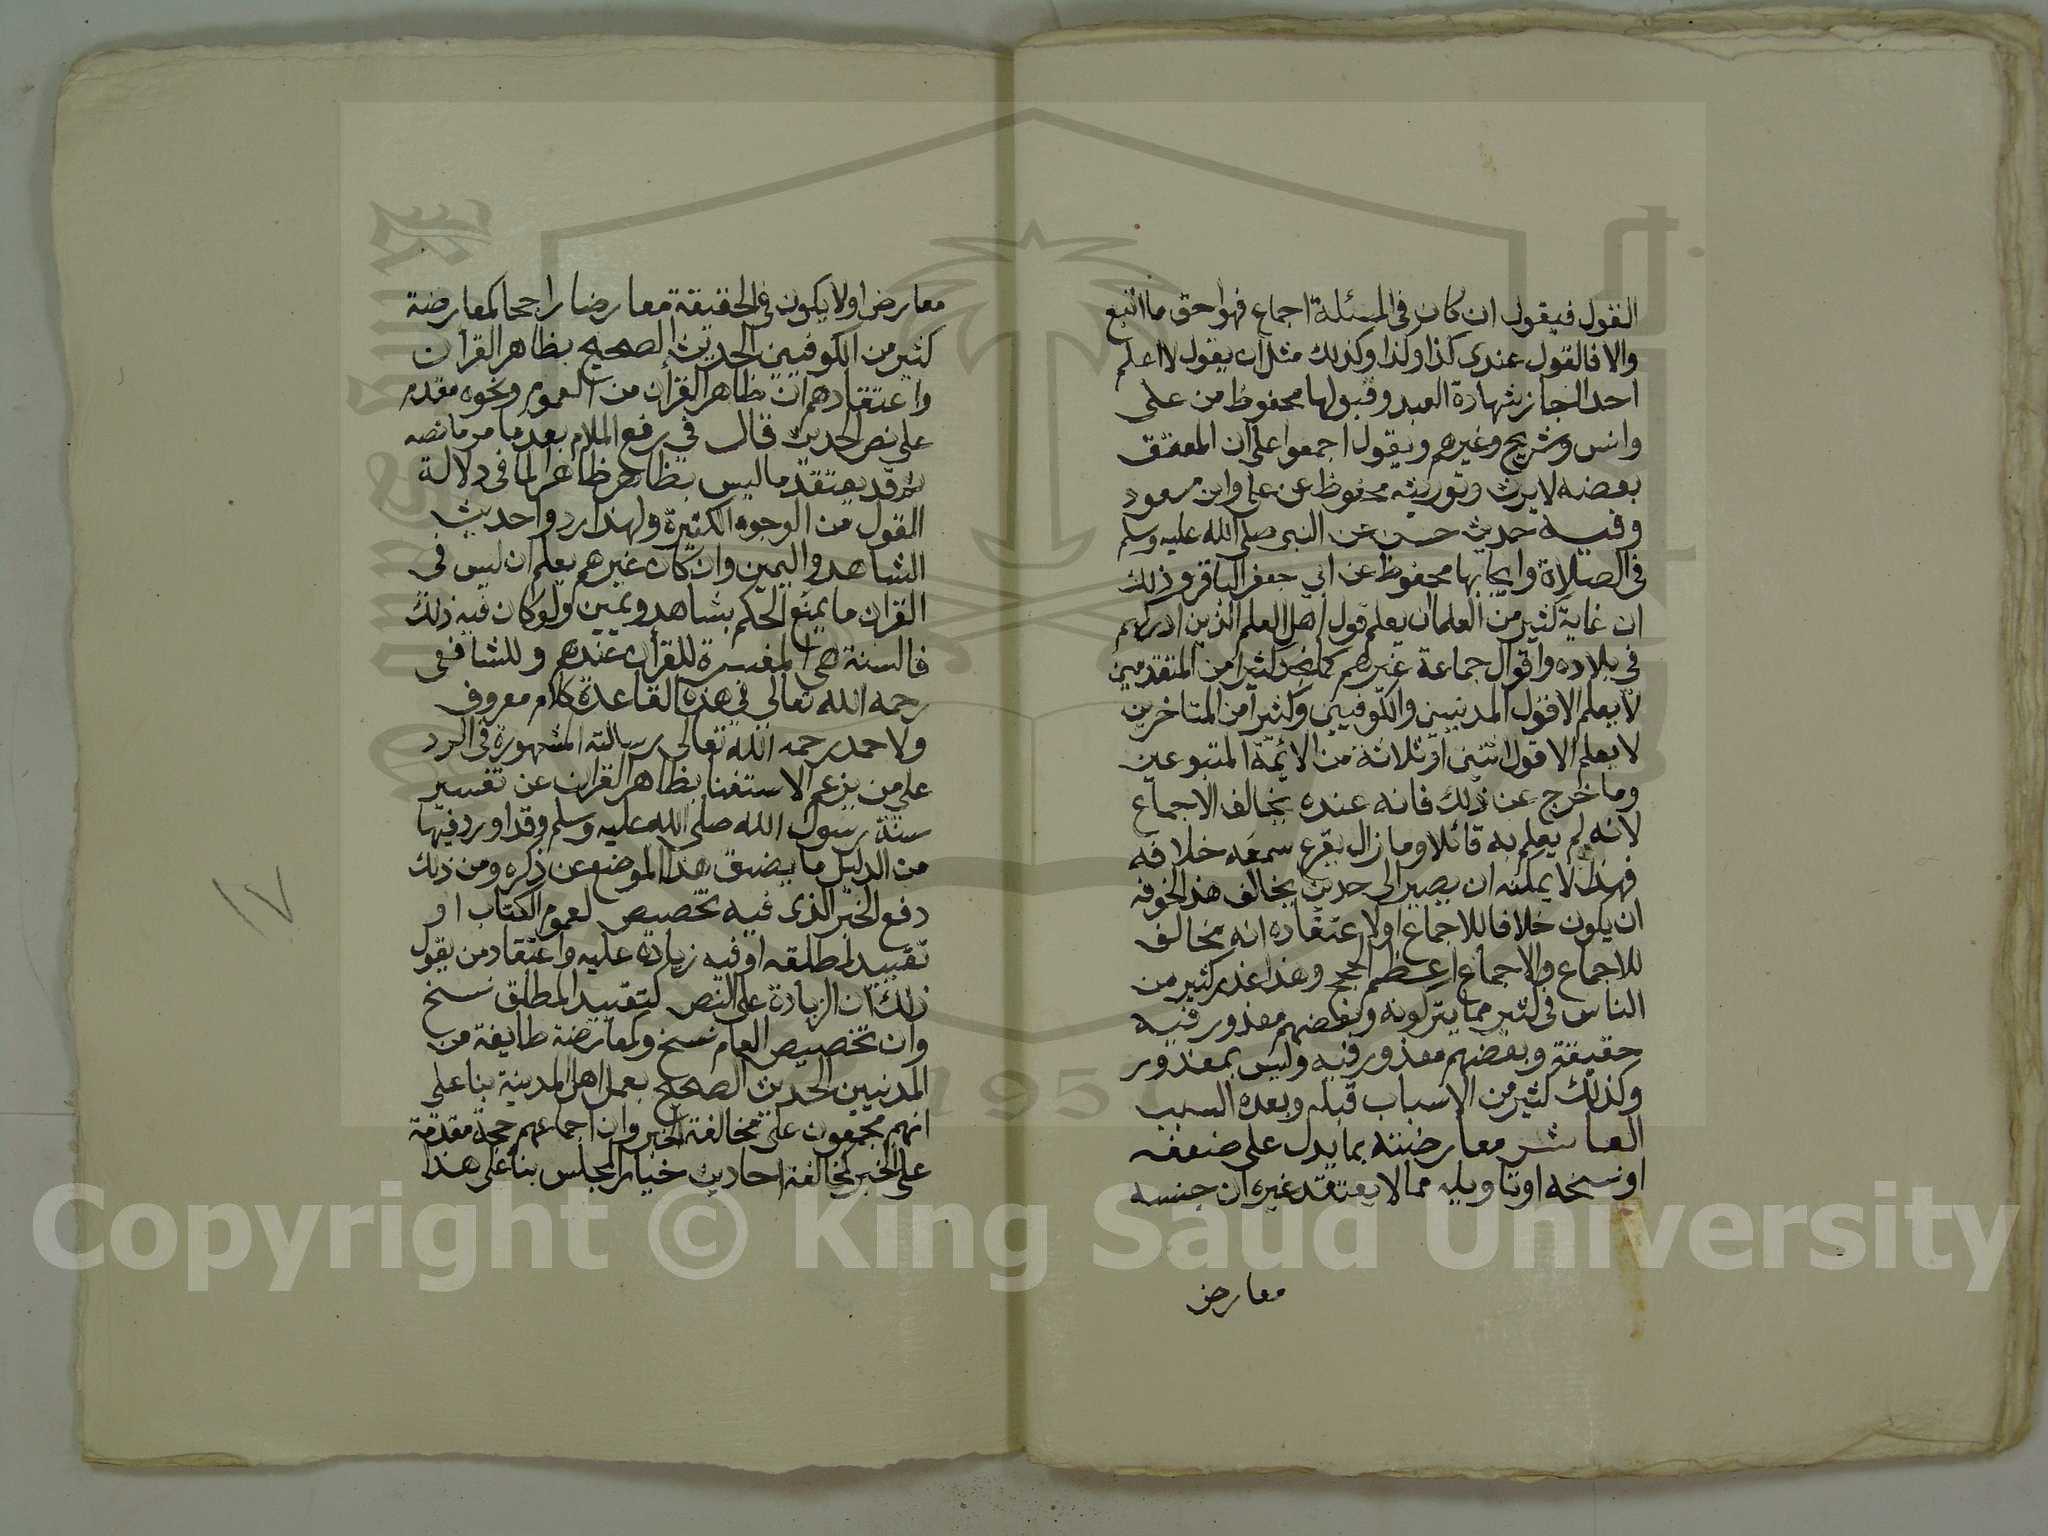 القول فيقول ان كان في المسئلة اجماع فهو احق ما اتبع
والا فالقول عندي كذا وكذا وكذلك مثل ان يقول لا اعلم
احدا اجاز شهادة العبد وقبولها محفوظ من علي
وانس وشريح وغيرهم ويقول اجمعوا علي ان المعتق
بعضه لا يرث وتوريثه محفوظ عن علي وابن مسعود
وفيه حديث حسن عن النبي صلى الله عليه وسلم
في الصلاة وايجابها محفوظ عن ابي جعفر الباقر وذلك
ان غاية كثير من العلما ان يعلم قول اهل العلم الذين ادركهم
في بلاده واقوال جماعة غيرهم كما نجد كثيرا من المتقدمين
لا يعلم الا قول المدنيين والكوفيين وكثيرا من المتاخرين
لا يعلم الا قول اثنين او ثلاثة من الائمة المتبوعين
وما خرج عن ذلك فانه عنده يخالف الاجماع
لانه لم يعلم به قائلا وما زال يقرع سمعه خلافه
فهذا لا يمكنه ان يصير الى حديث يخالف هذا لخوفه
ان يكون خلافا للاجماع او لاعتقاده انه مخالف
للاجماع والاجماع اعظم الحجج وهذا عذر كثير من
الناس في كثير مما يتركونه وبعضهم معذور فيه
حقيقة وبعضهم معذور فيه وليس بمعذور
وكذلك كثير من الاسباب قبله وبعده السبب
العاشر معارضته بما يدل على ضعفه
او نسخه او تاويله مما لا يعتقد غيره ان جنسه
معارض
معارض او لا يكون في الحقيقة معارضا راجحا كمعارضة
كثير من الكوفيين الحديث الصحيح بظاهر القرأن
واعتقادهم ان ظاهر القرأن من العموم ونحوه مقدم
علي نص الحديث قال في رفع الملام بعد ما مر ما نصه
ثم قد يعتقد ما ليس بظاهر ظاهرا لما في دلالة
القول من الوجوه الكثيرة ولهذا ردوا حديث
الشاهد واليمين وان كان غيرهم يعلم ان ليس في
القران ما يمنع الحكم بشاهد ويمين ولو كان فيه ذلك
فالسنة هي المفسرة للقرأن عندهم وللشافعي
رحمه الله تعالى في هذه القاعدة كلام معروف
ولاحمد رحمه الله تعالى رسالته المشهورة في الرد
علي من يزعم الاستغنا بظاهر القران عن تفسير
سنة رسول الله صلى الله عليه وسلم وقد اورد فيها
من الدليل ما يضيق هذا الموضع عن ذكره ومن ذلك
دفع الخبر الذي فيه تخصيص لعموم الكتاب او
تقييد لمطلقه او فيه زيادة عليه واعتقاد من يقول
ذلك ان الزيادة على النص كتقييد المطلق نسخ
وان تخصيص العام نسخ وكمعارضة طايفة من
المدنيين الحديث الصحيح بعمل اهل المدينة بنا علي
انهم مجمعون على مخالفة الخبر وان اجماعهم حجة مقدمة
علي الخبر كمخالفة احاديث خيار المجلس بنا علي هذا
١٧
Copyright © King Saud University
1957